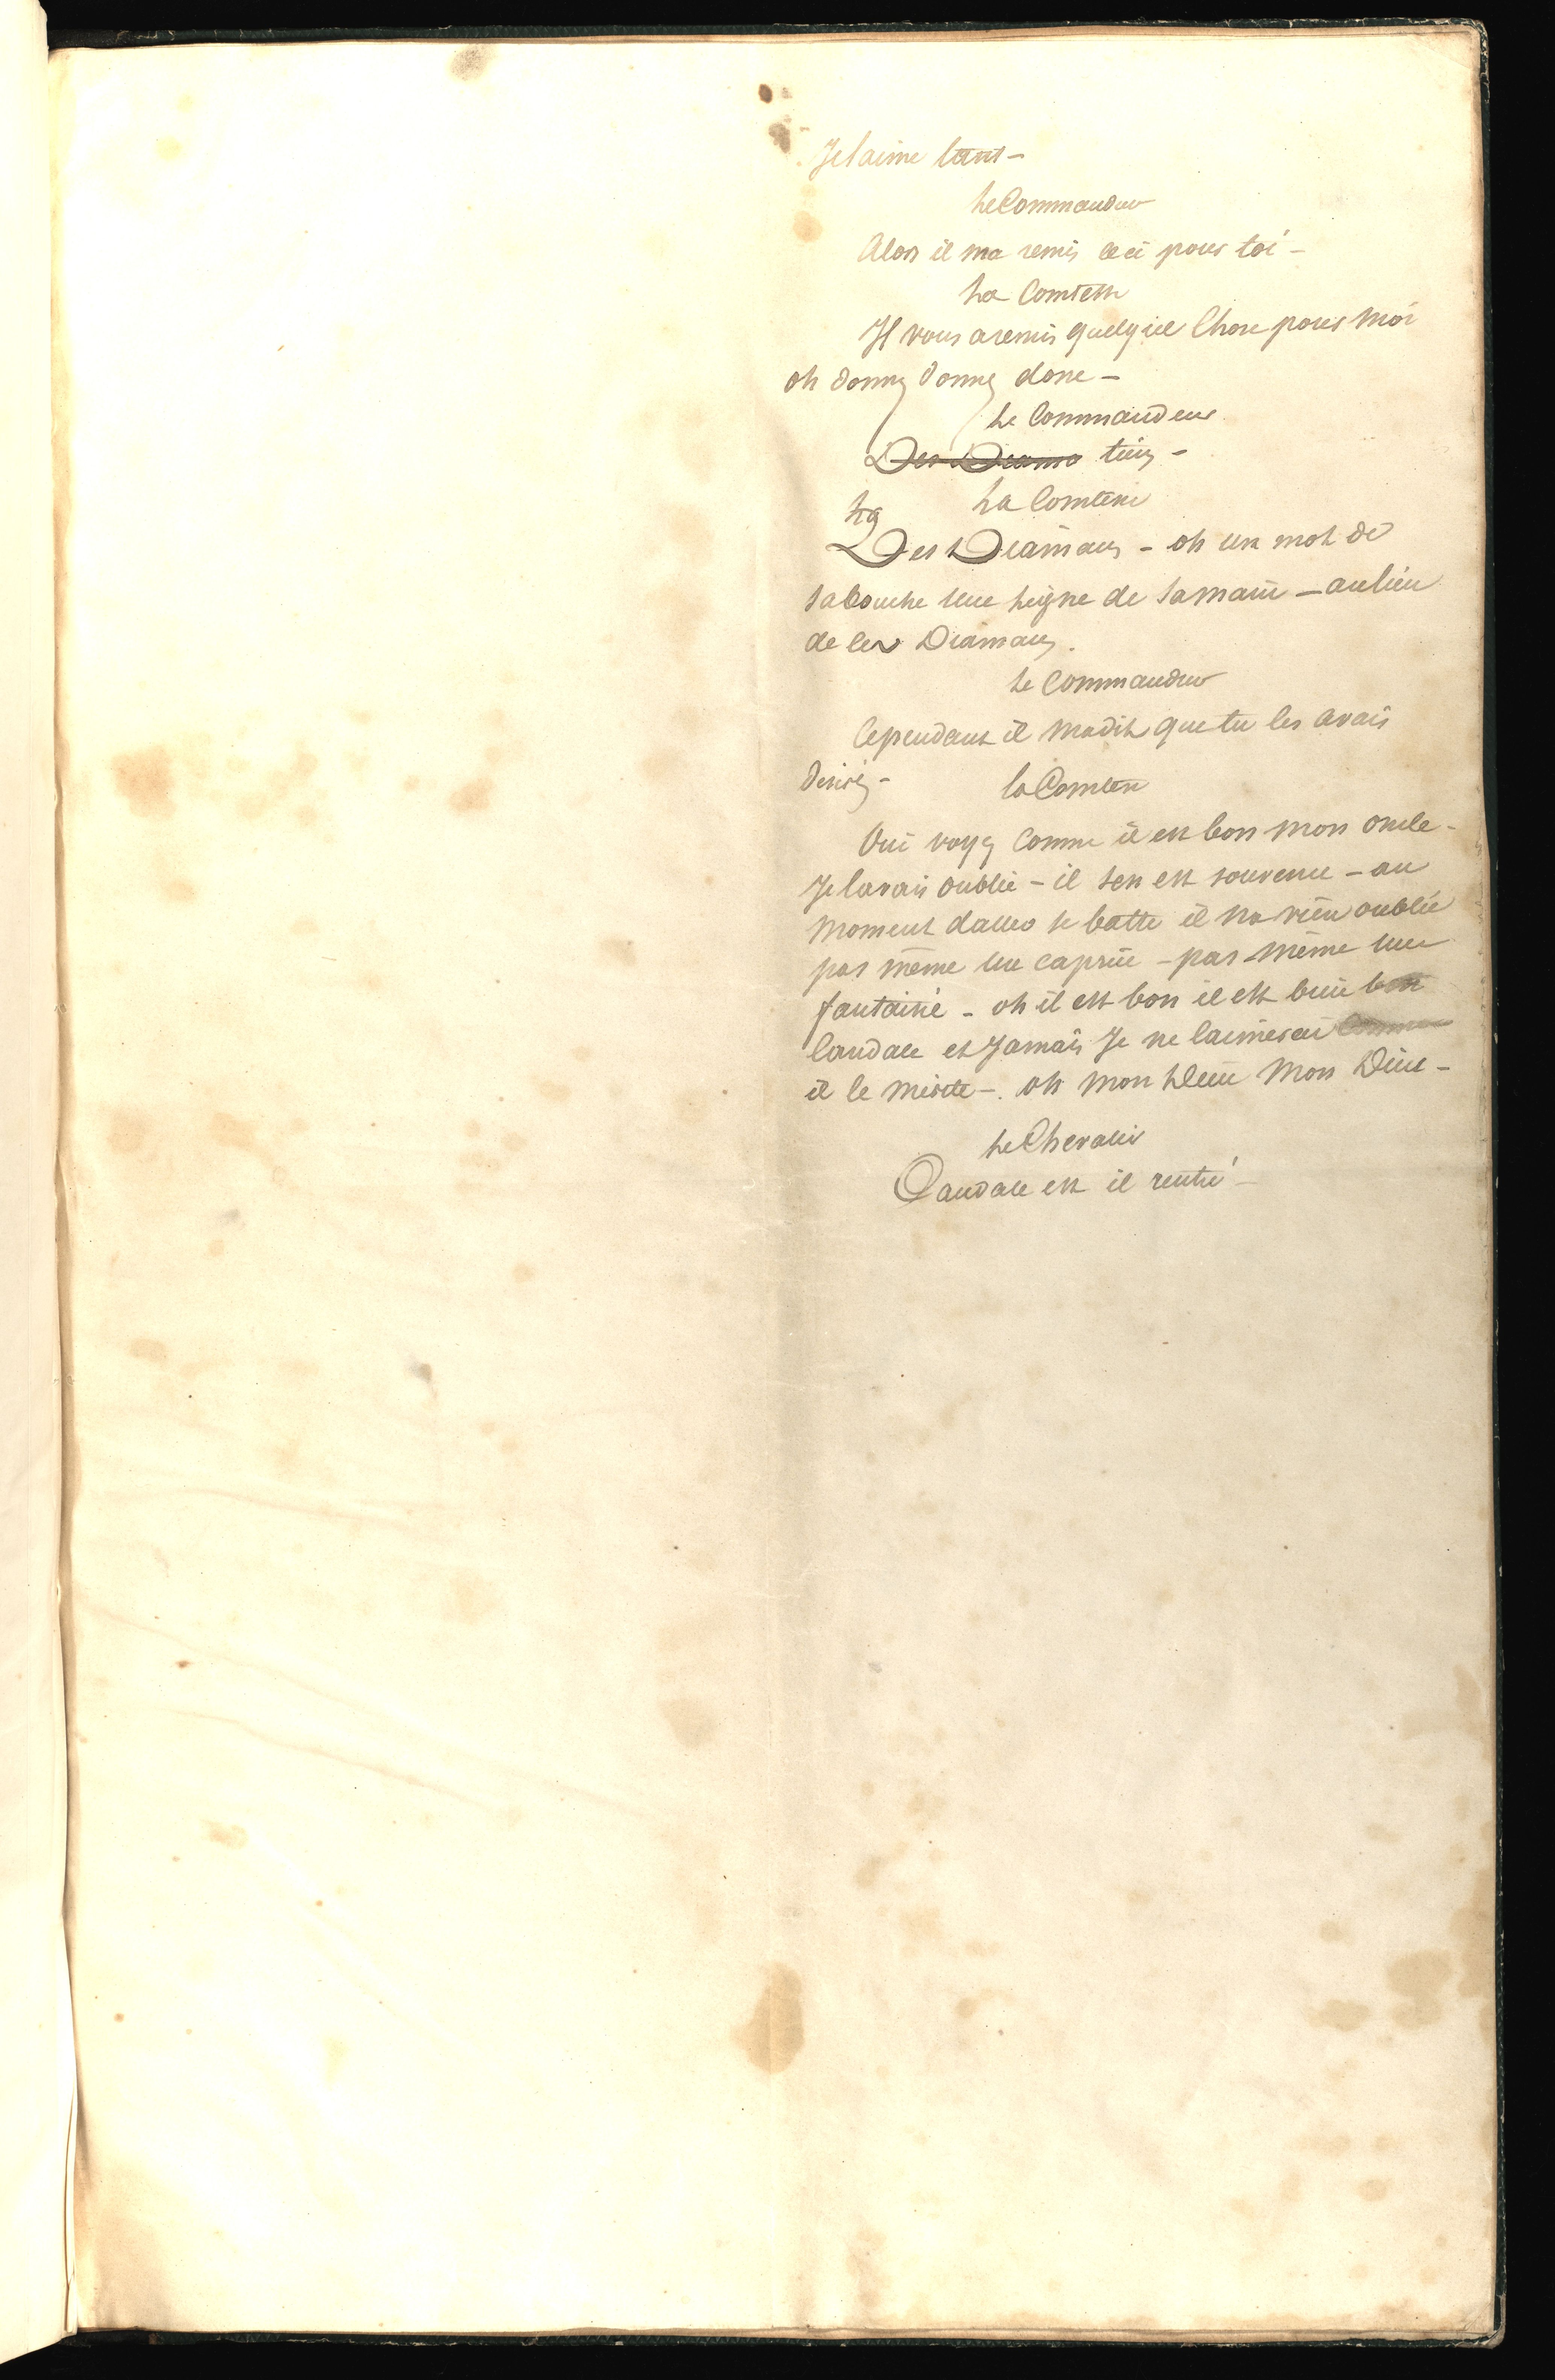 Je laime tant –
Le Commandeur
Alors il ma remis ceci pour toi –
La Comtesse
Il vous a remis quelque Chose pour moi
oh donnez donnez donc –
Le Commandeur
Des Diama tiens –
La Comtesse
Des Diamans – oh un mot de
sa bouche une ligne de sa main – au lieu
de ces Diamans.
Le Commandeur
Cependant il madit que tu les avais
désirés –
la Comtesse
Oui voyez comme il est bon mon oncle –
Je lavais oublié – il sen est souvenu – au
moment daller se battre il na rien oublié
pas même un caprice – pas même une
fantaisie – oh il est bon il est bien bon
Candale et Jamais Je ne laimerai comme
il le mérite –. oh mon Dieu mon Dieu –
Le Chevalier
Candale est il rentré –